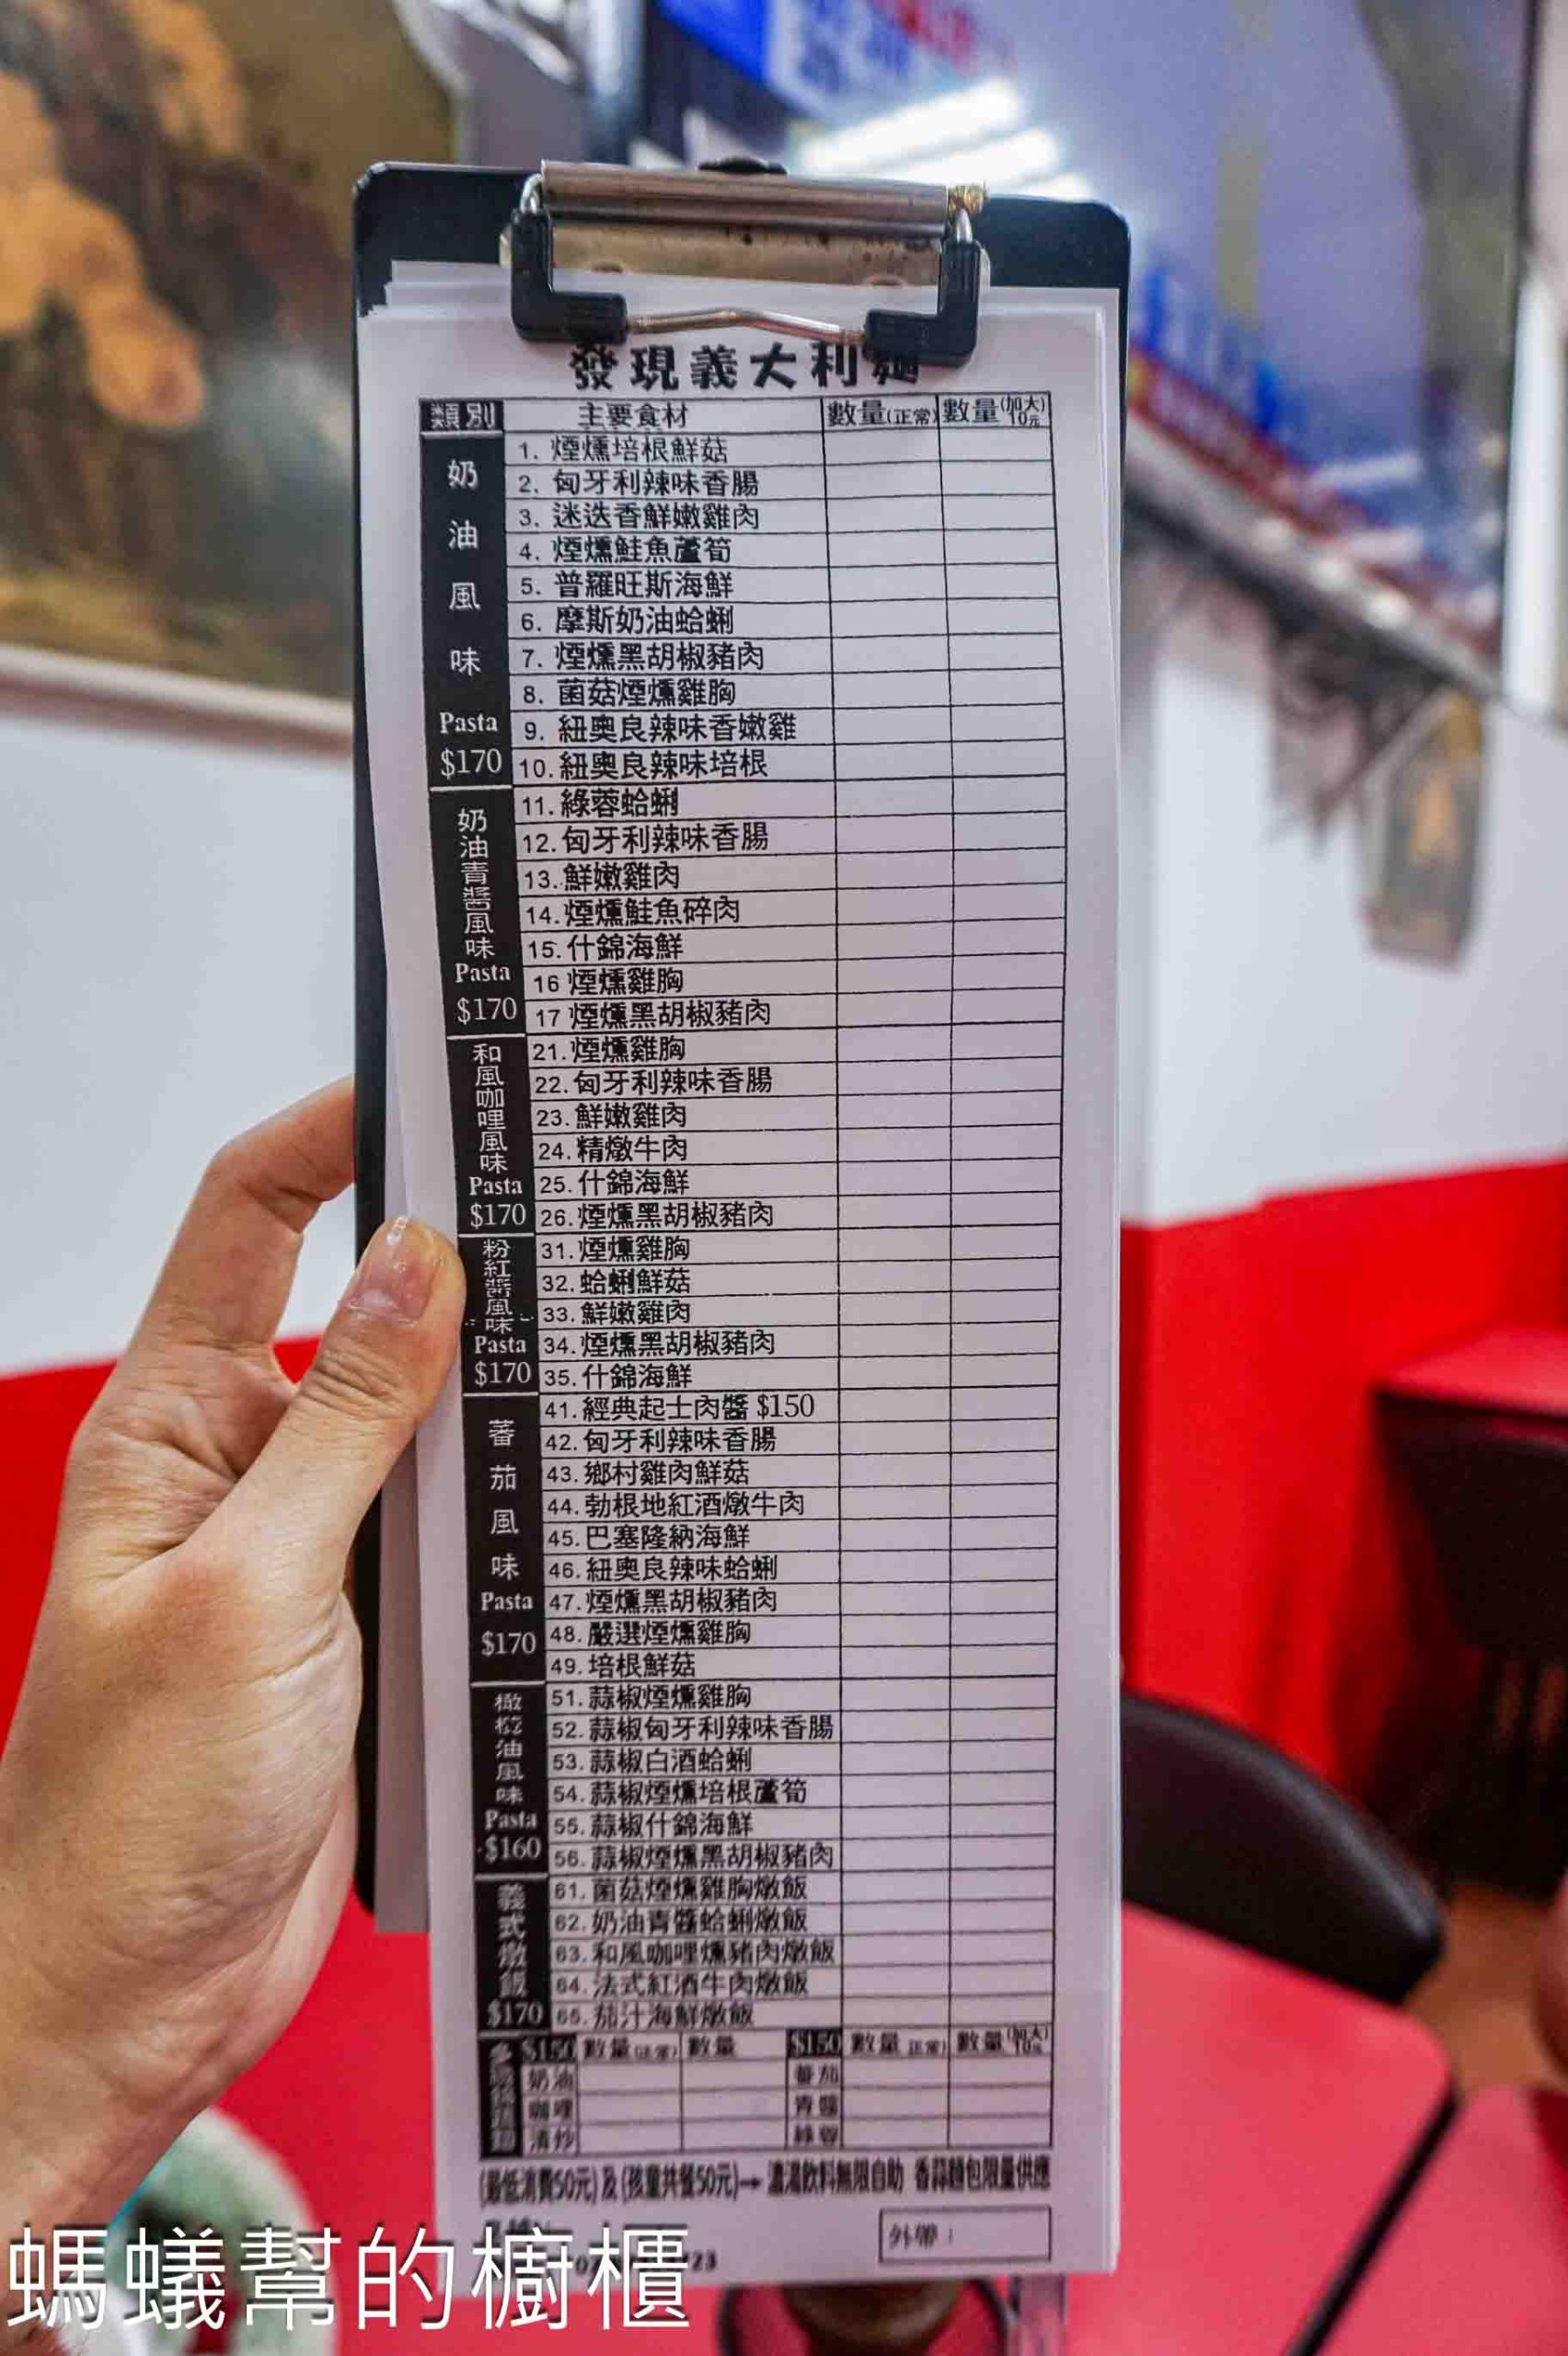 發現義大利麵
類別 主要食材 數量(正常) 數量(加大)10元
奶油風味 Pasta $170
1. 煙燻培根鮮菇
2. 匈牙利辣味香腸
3. 迷迭香鮮嫩雞肉
4. 煙燻鮭魚蘆筍
5. 普羅旺斯海鮮
6. 摩斯奶油蛤蜊
7. 煙燻黑胡椒豬肉
8. 菌菇煙燻雞胸
9. 紐奧良辣味香嫩雞
10. 紐奧良辣味培根
奶油青醬風味 Pasta $170
11. 綠蓉蛤蜊
12. 匈牙利辣味香腸
13. 鮮嫩雞肉
14. 煙燻鮭魚碎肉
15. 什錦海鮮
16 煙燻雞胸
17 煙燻黑胡椒豬肉
和風咖哩風味 Pasta $170
21. 煙燻雞胸
22. 匈牙利辣味香腸
23. 鮮嫩雞肉
24. 精燉牛肉
25. 什錦海鮮
26. 煙燻黑胡椒豬肉
粉紅醬風味 Pasta $170
31. 煙燻雞胸
32. 蛤蜊鮮菇
33. 鮮嫩雞肉
34. 煙燻黑胡椒豬肉
35. 什錦海鮮
蕃茄風味 Pasta $170
41. 經典起士肉醬 $150
42. 匈牙利辣味香腸
43. 鄉村雞肉鮮菇
44. 勃根地紅酒燉牛肉
45. 巴塞隆納海鮮
46. 紐奧良辣味蛤蜊
47. 煙燻黑胡椒豬肉
48. 嚴選煙燻雞胸
49. 培根鮮菇
橄欖油風味 Pasta $160
51. 蒜椒煙燻雞胸
52. 蒜椒匈牙利辣味香腸
53. 蒜椒白酒蛤蜊
54. 蒜椒煙燻培根蘆筍
55. 蒜椒什錦海鮮
56. 蒜椒煙燻黑胡椒豬肉
義式燉飯 $170
61. 菌菇煙燻雞胸燉飯
62. 奶油青醬蛤蜊燉飯
63. 和風咖哩燻豬肉燉飯
64. 法式紅酒牛肉燉飯
65. 茄汁海鮮燉飯
$150 數量(正常) 數量 $150 數量(正常) 數量(加大)10元
奶油 蕃茄
咖哩 青醬
清炒
(最低消費50元)及(孩童共餐50元)→ 濃湯飲料無限自助 香蒜麵包限量供應
外帶：
螞蟻幫的櫥櫃